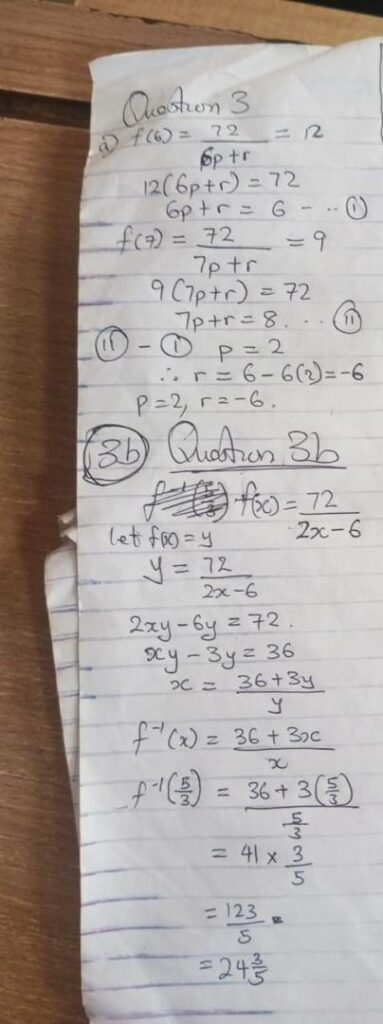 Question 3
a) f(6) = 72/(6p+r) = 12
12(6p+r) = 72
6p+r = 6 - .. (i)
f(7) = 72/(7p+r) = 9
9(7p+r) = 72
7p+r = 8. .. (ii)
(ii) - (i) p = 2
∴ r = 6-6(2) = -6
p=2, r=-6.
(3b) Question 3b
f(x) = 72/(2x-6)
let f(x) = y
y = 72/(2x-6)
2xy-6y = 72.
xy-3y = 36
x = (36+3y)/y
f⁻¹(x) = (36+3x)/x
f⁻¹(5/3) = (36+3(5/3))/(5/3)
= 41 × 3/5
= 123/5
= 24 3/5